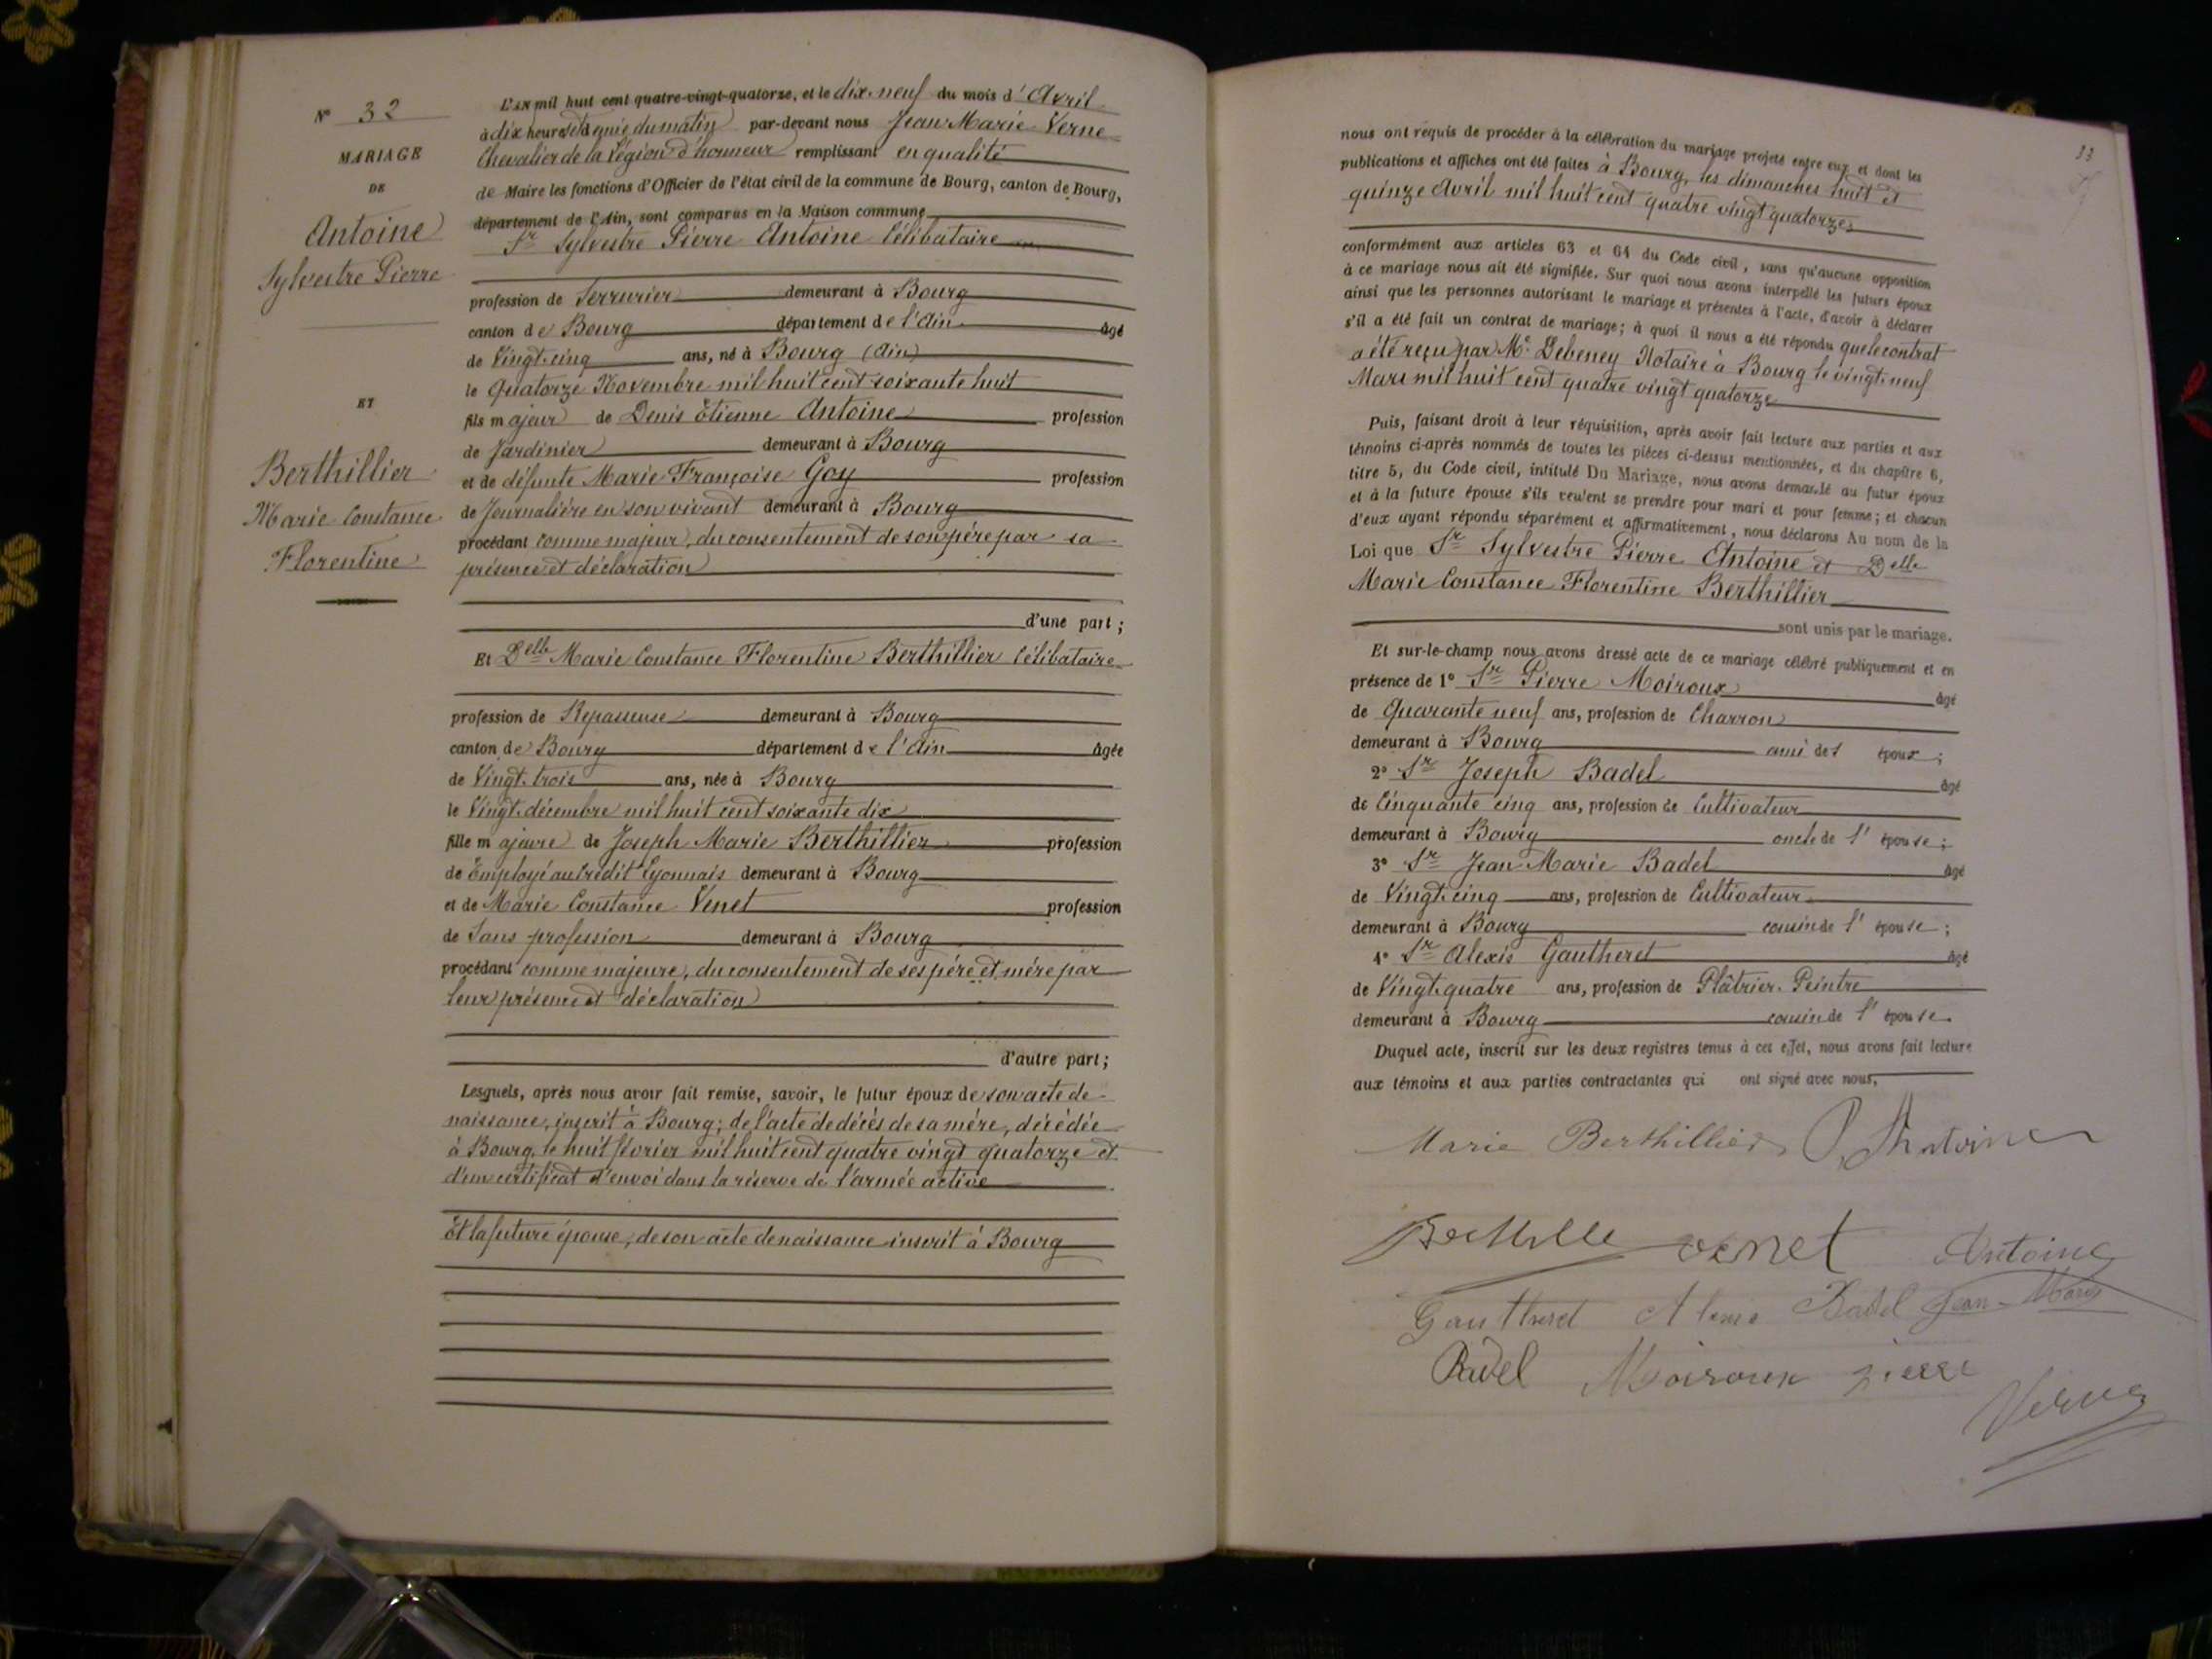 N° 32
MARIAGE
DE
Antoine
Sylvestre Pierre
ET
Berthillier
Marie Constance
Florentine
L'an mil huit cent quatre-vingt-quatorze, et le dix-neuf du mois d'Avril
à dix heures et demie du matin par-devant nous Jean Marie Verne
Chevalier de la Légion d'honneur remplissant en qualité
de Maire les fonctions d'Officier de l'état civil de la commune de Bourg, canton de Bourg,
département de l'Ain, sont comparus en la Maison commune
Sr Sylvestre Pierre Antoine Célibataire
profession de Serrurier demeurant à Bourg
canton de Bourg département de l'Ain âgé
de Vingt-cinq ans, né à Bourg (Ain)
le Quatorze Novembre mil huit cent soixante huit
fils majeur de Denis Etienne Antoine profession
de Jardinier demeurant à Bourg
et de défunte Marie Françoise Goy profession
de Journalière en son vivant demeurant à Bourg
procédant comme majeur, du consentement de son père par sa
présence et déclaration
d'une part;
Et Delle Marie Constance Florentine Berthillier Célibataire
profession de Repasseuse demeurant à Bourg
canton de Bourg département de l'Ain âgée
de Vingt-trois ans, née à Bourg
le Vingt décembre mil huit cent soixante dix
fille majeure de Joseph Marie Berthillier profession
de Employé au Crédit Lyonnais demeurant à Bourg
et de Marie Constance Venet profession
de Sans profession demeurant à Bourg
procédant comme majeure, du consentement de ses père et mère par
leur présence et déclaration
d'autre part;
Lesquels, après nous avoir fait remise, savoir, le futur époux de son acte de
naissance, inscrit à Bourg; de l'acte de décès de sa mère, décédée
à Bourg, le huit février mil huit cent quatre vingt quatorze et
d'un certificat d'envoi dans la réserve de l'armée active
Et la future épouse, de son acte de naissance inscrit à Bourg
23
nous ont requis de procéder à la célébration du mariage projeté entre eux et dont les
publications et affiches ont été faites à Bourg, les dimanches huit et
quinze Avril mil huit cent quatre vingt quatorze
conformément aux articles 63 et 64 du Code civil, sans qu'aucune opposition
à ce mariage nous ait été signifiée. Sur quoi nous avons interpellé les futurs époux
ainsi que les personnes autorisant le mariage et présentes à l'acte, d'avoir à déclarer
s'il a été fait un contrat de mariage; à quoi il nous a été répondu que le contrat
a été reçu par Me Debeney Notaire à Bourg le vingt-neuf
Mars mil huit cent quatre vingt quatorze
Puis, faisant droit à leur réquisition, après avoir fait lecture aux parties et aux
témoins ci-après nommés de toutes les pièces ci-dessus mentionnées, et du chapitre 6,
titre 5, du Code civil, intitulé Du Mariage, nous avons demandé au futur époux
et à la future épouse s'ils veulent se prendre pour mari et pour femme; et chacun
d'eux ayant répondu séparément et affirmativement, nous déclarons Au nom de la
Loi que Sr Sylvestre Pierre Antoine et Delle
Marie Constance Florentine Berthillier
sont unis par le mariage.
Et sur-le-champ nous avons dressé acte de ce mariage célébré publiquement et en
présence de 1° Sr Pierre Moiroux âgé
de Quarante neuf ans, profession de Charron
demeurant à Bourg ami des époux;
2° Sr Joseph Badel âgé
de Cinquante cinq ans, profession de Cultivateur
demeurant à Bourg oncle de l'épouse;
3° Sr Jean Marie Badel âgé
de Vingt-cinq ans, profession de Cultivateur
demeurant à Bourg cousin de l'épouse;
4° Sr Alexis Gautheret âgé
de Vingt-quatre ans, profession de Plâtrier-Peintre
demeurant à Bourg cousin de l'épouse
Duquel acte, inscrit sur les deux registres tenus à cet effet, nous avons fait lecture
aux témoins et aux parties contractantes qui ont signé avec nous,
Marie Berthillier P. Antoine
venet Antoine
Gautheret Alexis Badel Jean-Marie
Badel Moiroux pierre
Verne